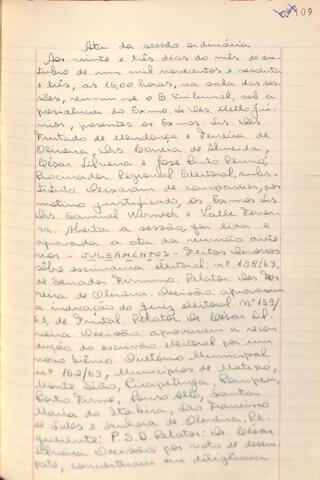 109
Ata da sessão ordinária
Aos vinte e três dias do mês de ou-
tubro de um mil novecentos e sessenta
e três, às 16,00 horas, na sala das ses-
sões, reuniu-se o E. Tribunal, sob a
presidência do Exmo. Sr. Des. Mello Jú-
nior, presentes os Exmos. Srs. Des.
Furtado de Mendonça e Ferreira de
Oliveira, Drs. Correia de Almeida,
César Silveira e José Pinto Renno,
Procurador Regional Eleitoral, substi-
tuto. Deixaram de comparecer, por
motivo justificado, os Exmos. Srs.
Drs. Samuel Werneck e Valle Fonse-
ca. Aberta a sessão, foi lida e
aprovada a ata da reunião ante-
rior. - JULGAMENTOS - Feitos Diversos
sôbre escrivania eleitoral: nº 158/63,
de Senador Firmino. Relator: Des. Fer-
reira de Oliveira. Decisão: aprovaram
a indicação do juiz eleitoral. Nº 159/
63, de Cristal. Relator: Dr. César Sil-
veira. Decisão: aprovaram a recon-
dução do escrivão eleitoral por um
novo biênio. Diretório Municipal
nº 162/63, Municípios de Matipó,
Monte Sião, Pirapetinga, Pompeu,
Porto Firme, Pouso Alto, Santa
Maria do Itabira, São Francisco
de Sales e Senhora de Oliveira. Re-
querente: P.S.D. Relator: Dr. César
Silveira. Decisão: por voto de desem-
pate, converteram em diligência